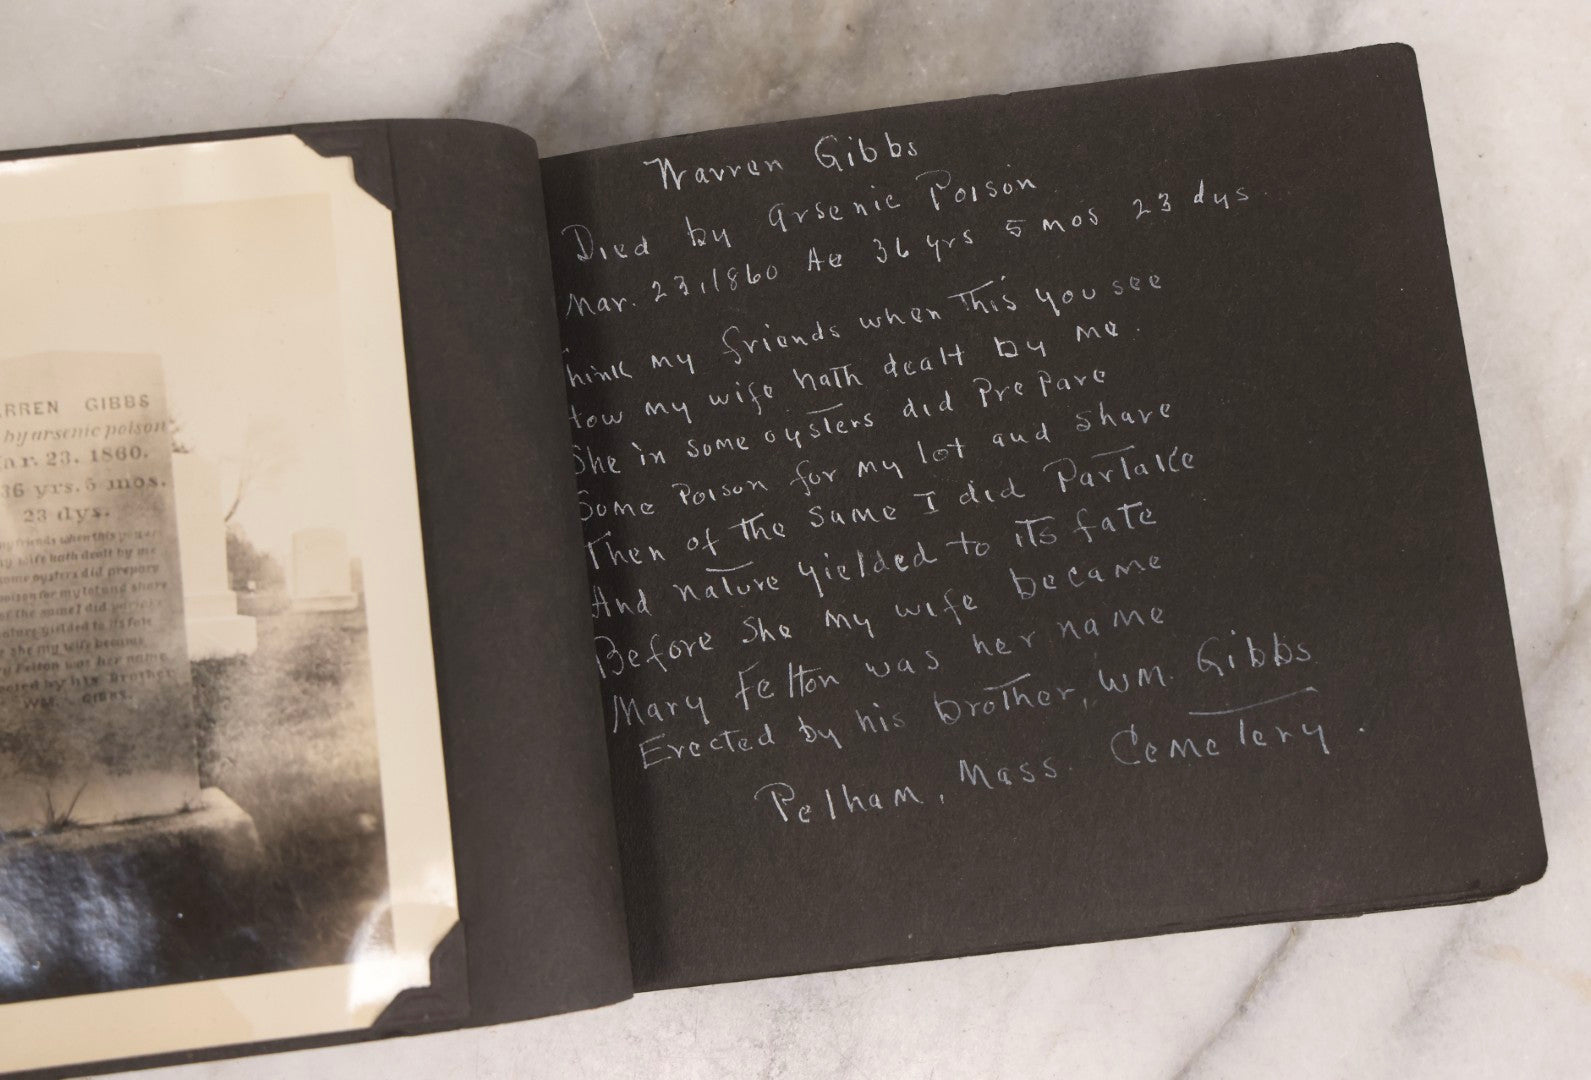 RREN GIBBS
by arsenic poison
ar. 23. 1860.
36 yrs. 5 mos.
23 dys.
my friends when this you see
my wife hath dealt by me
some oysters did prepare
poison for my lot and share
of the same I did partake
nature yielded to its fate
she my wife became
Felton was her name
ected by his Brother
WM. GIBBS.
Warren Gibbs
Died by arsenic Poison
Mar. 23, 1860 Ae 36 yrs 5 mos 23 dys.
hink my friends when this you see
How my wife hath dealt by me.
She in some oysters did prepare
Some Poison for my lot and share
Then of the same I did Partake
And nature yielded to its fate
Before she my wife became
Mary Felton was her name
Erected by his brother, WM. Gibbs
Pelham, Mass. Cemetery.